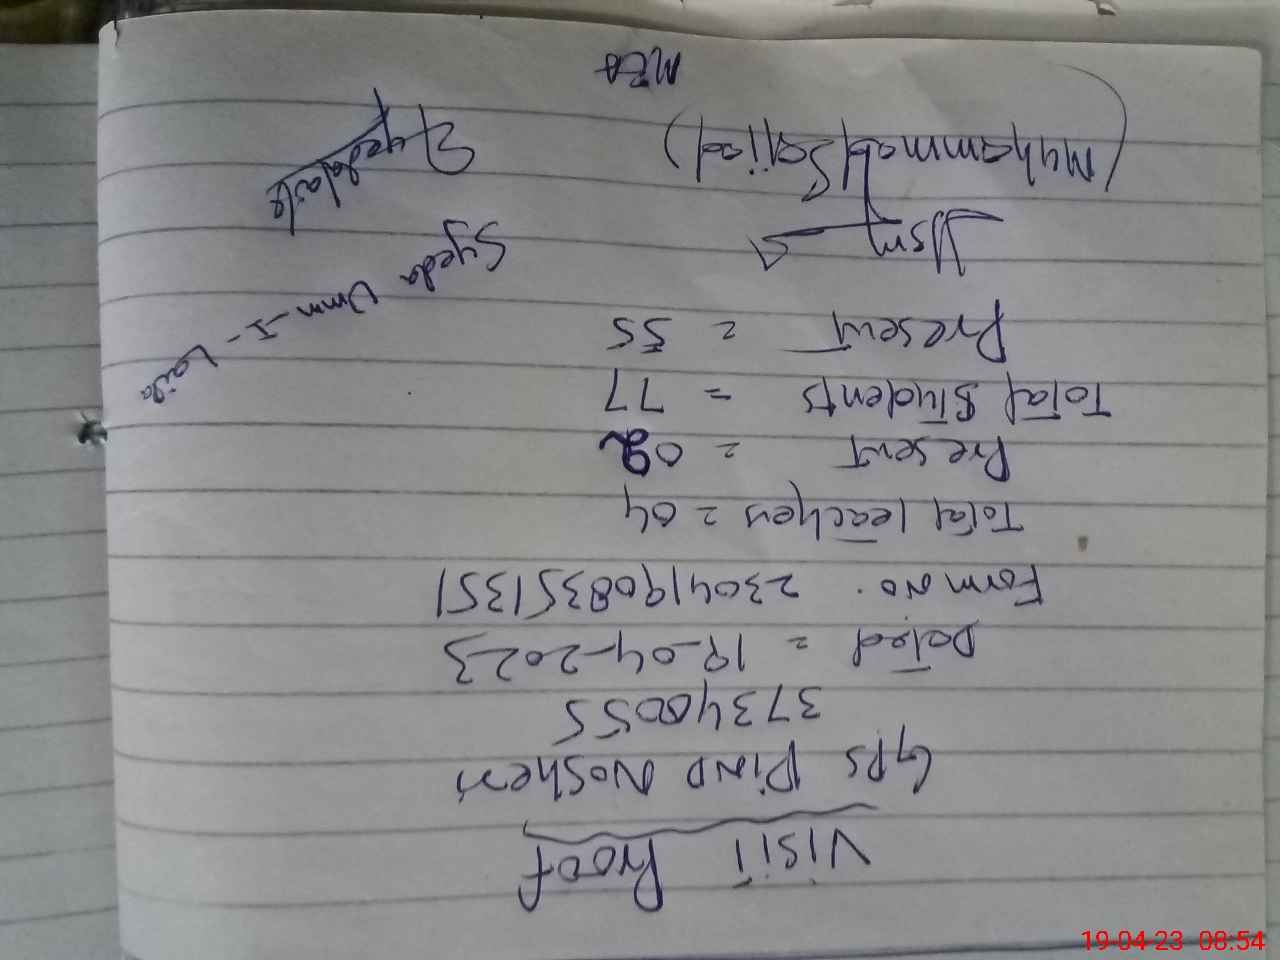 Visit Proof
GPS Pind Nosheri
37340055
Dated = 19-04-2023
Form No. 23041908351351
Total Teachers = 04
Present = 02
Total Students = 77
Present = 55
(Muhammad Sajjad)
MEA
Syeda Umm-I-Laila
19-04-23 08:54